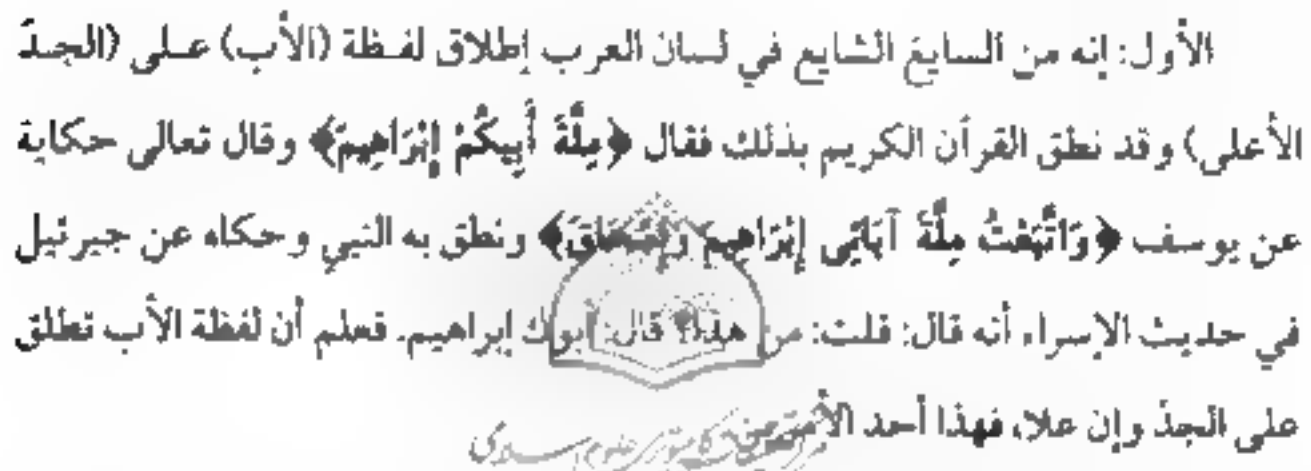 الأول: إنه من السايغ الشايع في لسان العرب إطلاق لفظة (الأب) على (الجدّ
الأعلى) وقد نطق القرآن الكريم بذلك فقال ﴿مِلَّةَ أَبِيكُمْ إِبْرَاهِيمَ﴾ وقال تعالى حكاية
عن يوسف ﴿وَاتَّبَعْتُ مِلَّةَ آبَائِي إِبْرَاهِيمَ وَإِسْحَاقَ﴾ ونطق به النبي وحكاه عن جبرئيل
في حديث الإسراء أنه قال: قلت: من هذا؟ قال: أبوك إبراهيم. فعلم أن لفظة الأب تطلق
على الجدّ وإن علا، فهذا أحد الأمرين.